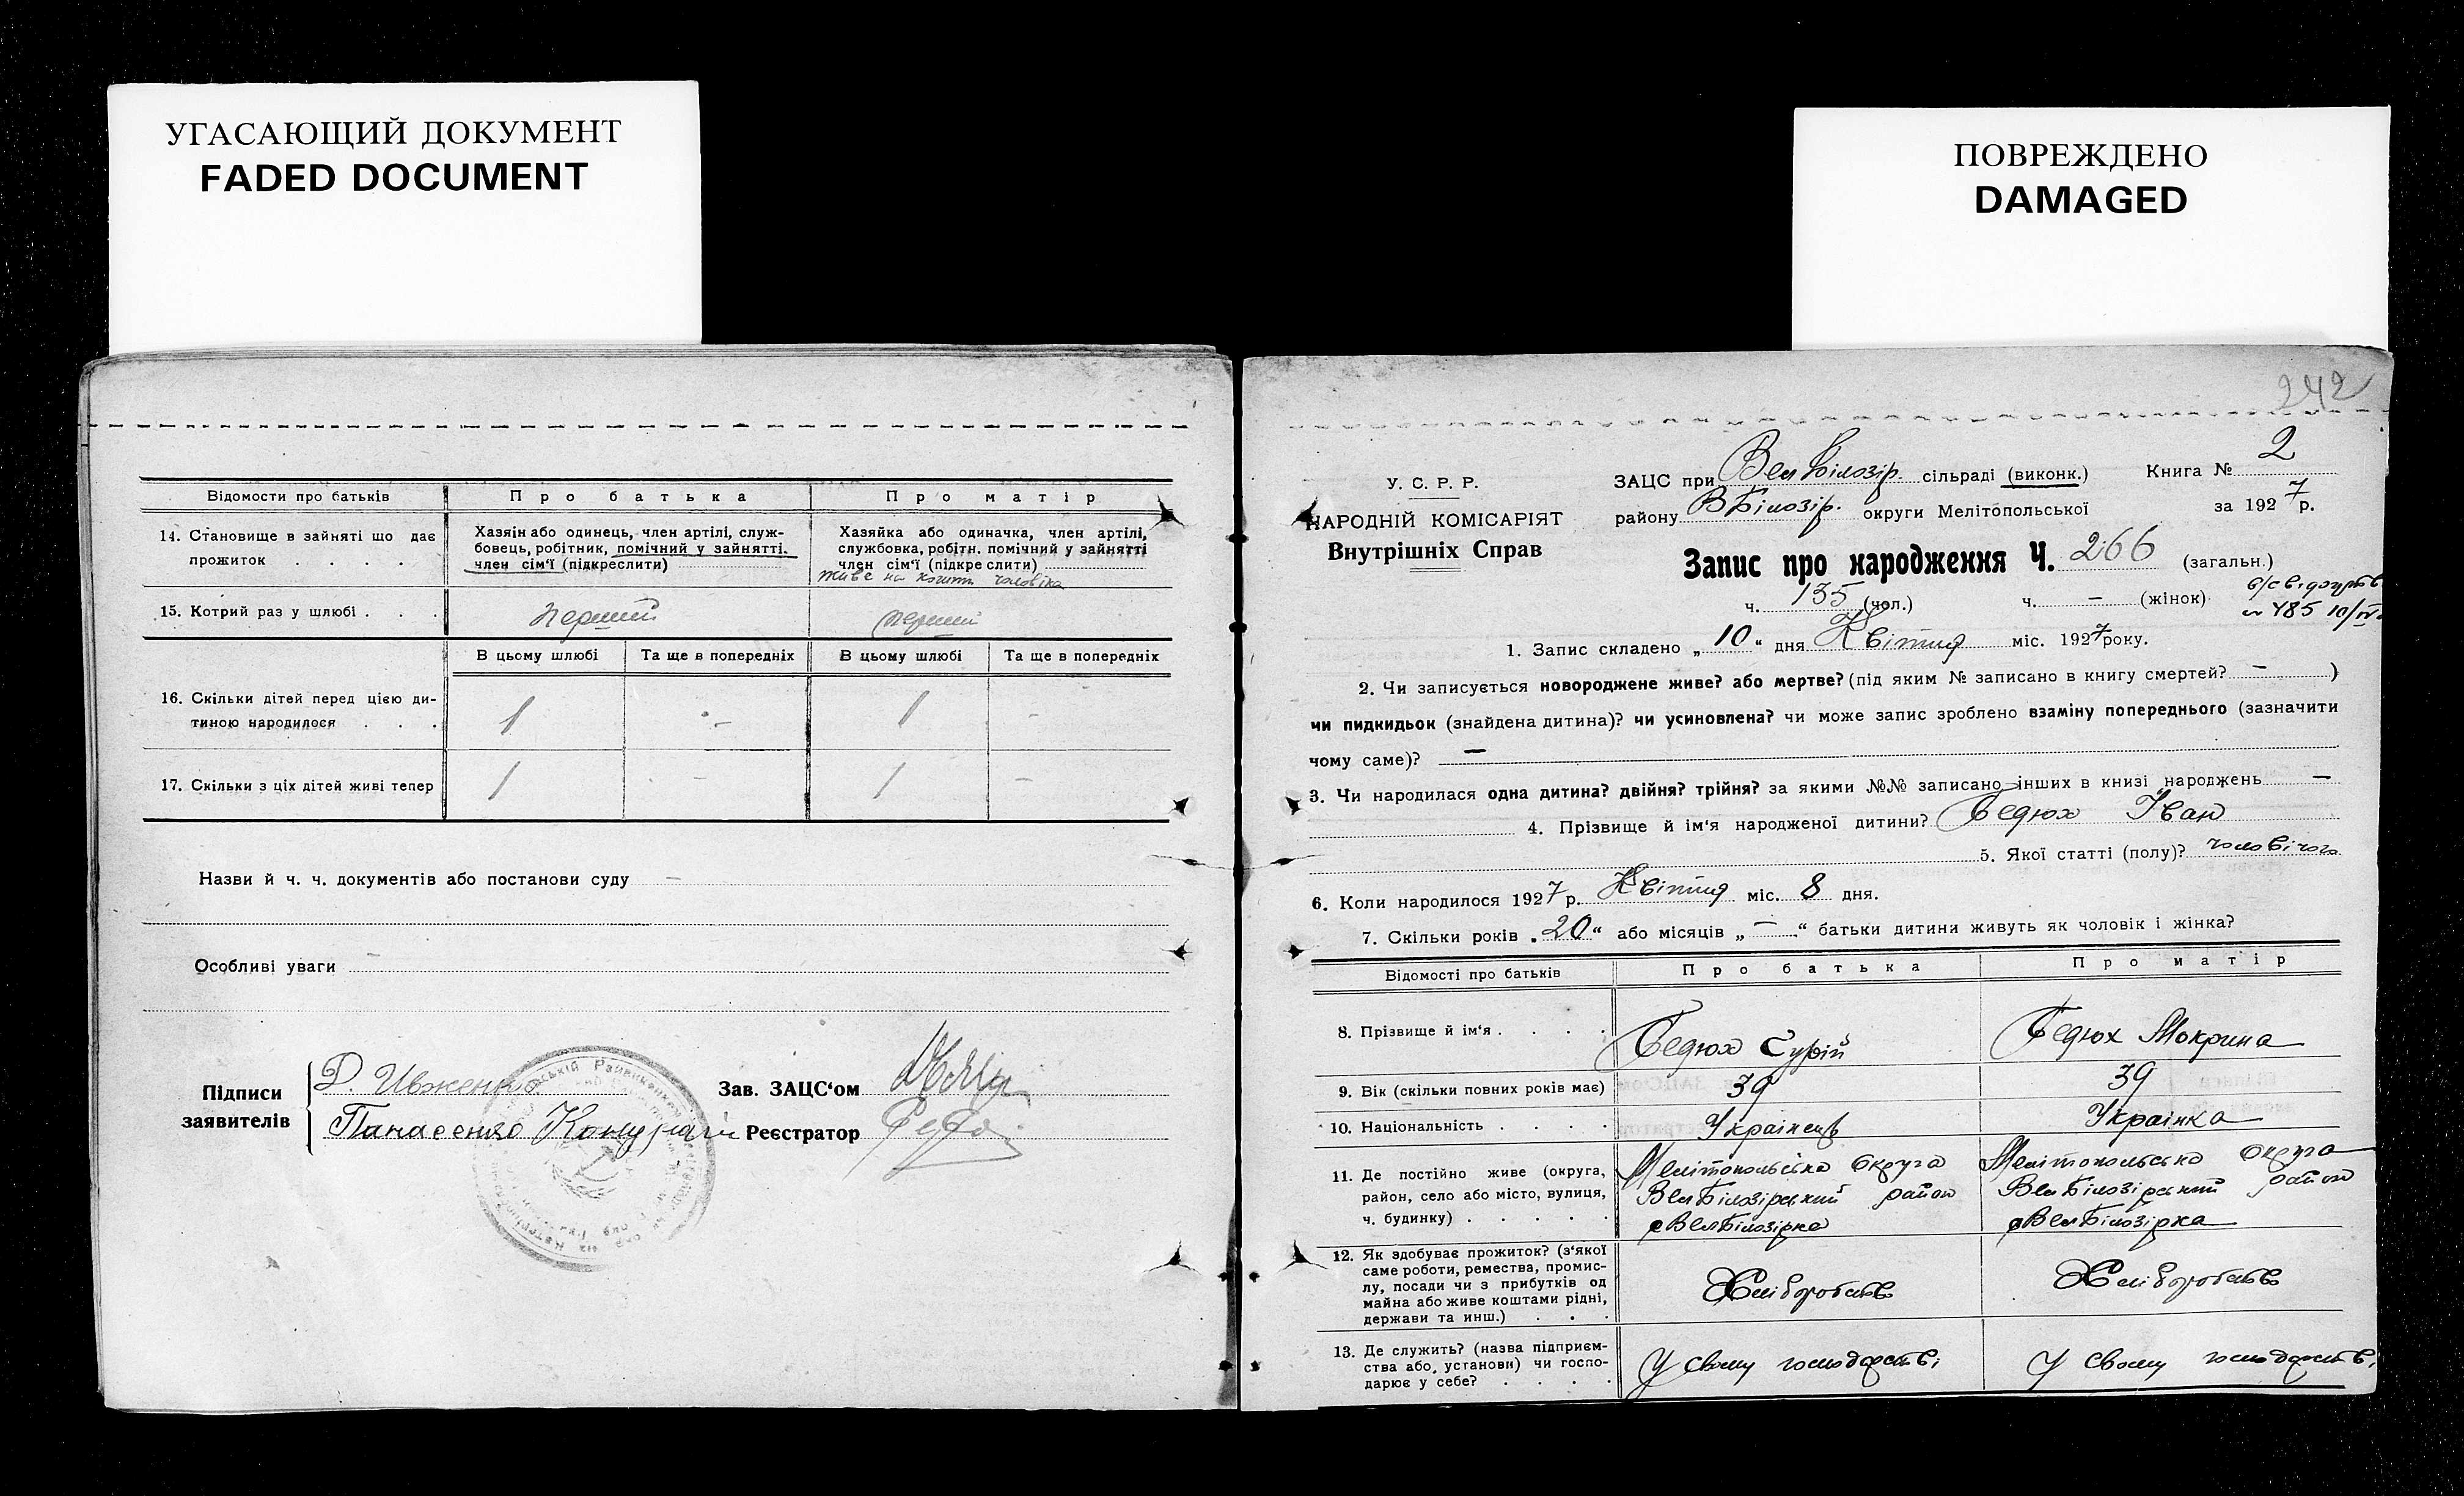 УГАСАЮЩИЙ ДОКУМЕНТ
FADED DOCUMENT
ПОВРЕЖДЕНО
DAMAGED
Відомости про батьків
Про батька
Про матір
14. Становище в зайняті що дає
прожиток . . . .
Хазяін або одинець, член артілі, служ-
бовець, робітник, помічний у зайнятті.
член сім'ї (підкреслити)
Хазяйка або одиначка, член артілі,
службовка, робітн. помічний у зайнятті
член сім'ї (підкре слити)
живе на кошти чоловіка
15. Котрий раз у шлюбі . . .
перший
перший
В цьому шлюбі
Та ще в попередніх
В цьому шлюбі
Та ще в попередніх
16. Скільки дітей перед цією ди-
тиною народилося . . .
1 - 1 -
17. Скільки з ціх дітей живі тепер
1 - 1 -
Назви й ч. ч. документів або постанови суду —
Особливі уваги —
Підписи
заявителів
Д. Ивженко
Панасенко
Зав. ЗАЦС'ом
Реєстратор
242
У. С. Р. Р.
НАРОДНІЙ КОМІСАРІЯТ
Внутрішніх Справ
ЗАЦС при Вел Білозір. сільраді (виконк.) Книга № 2
району ВБілозір. округи Мелітопольської за 1927 р.
Запис про народження Ч. 266 (загальн.)
ч. 135 (чол.) ч. — (жінок)
№ 485 10/IV
1. Запис складено „10“ дня Квітня міс. 1927 року.
2. Чи записується новороджене живе? або мертве? (під яким № записано в книгу смертей? — )
чи пидкидьок (знайдена дитина)? чи усиновлена? чи може запис зроблено взаміну попереднього (зазначити
чому саме)? —
3. Чи народилася одна дитина? двійня? трійня? за якими №№ записано інших в книзі народжень —
4. Прізвище й ім'я народженої дитини? Бедюх Іван
5. Якої статті (полу)? чоловічого
6. Коли народилося 1927 р. Квітня міс. 8 дня.
7. Скільки років „20“ або місяців „—“ батьки дитини живуть як чоловік і жінка?
Відомості про батьків
Про батька
Про матір
8. Прізвище й ім'я . . . .
Бедюх
Бедюх Мокрина
9. Вік (скільки повних років має)
39
39
10. Національність . . . .
Українець
Українка
11. Де постійно живе (округа,
район, село або місто, вулиця,
ч. будинку) . . . . .
Мелітопольська округа
Вел Білозірський район
с Вел Білозірка
Мелітопольська округа
Вел Білозірський район
с Вел Білозірка
12. Як здобуває прожиток? (з'якої
саме роботи, ремества, промис-
лу, посади чи з прибутків од
майна або живе коштами рідні,
держави та инш.) . . .
Хліборобство
Хліборобство
13. Де служить? (назва підприєм-
ства або, установи) чи госпо-
дарює у себе? . . . .
У свому господарстві
У свому господарстві